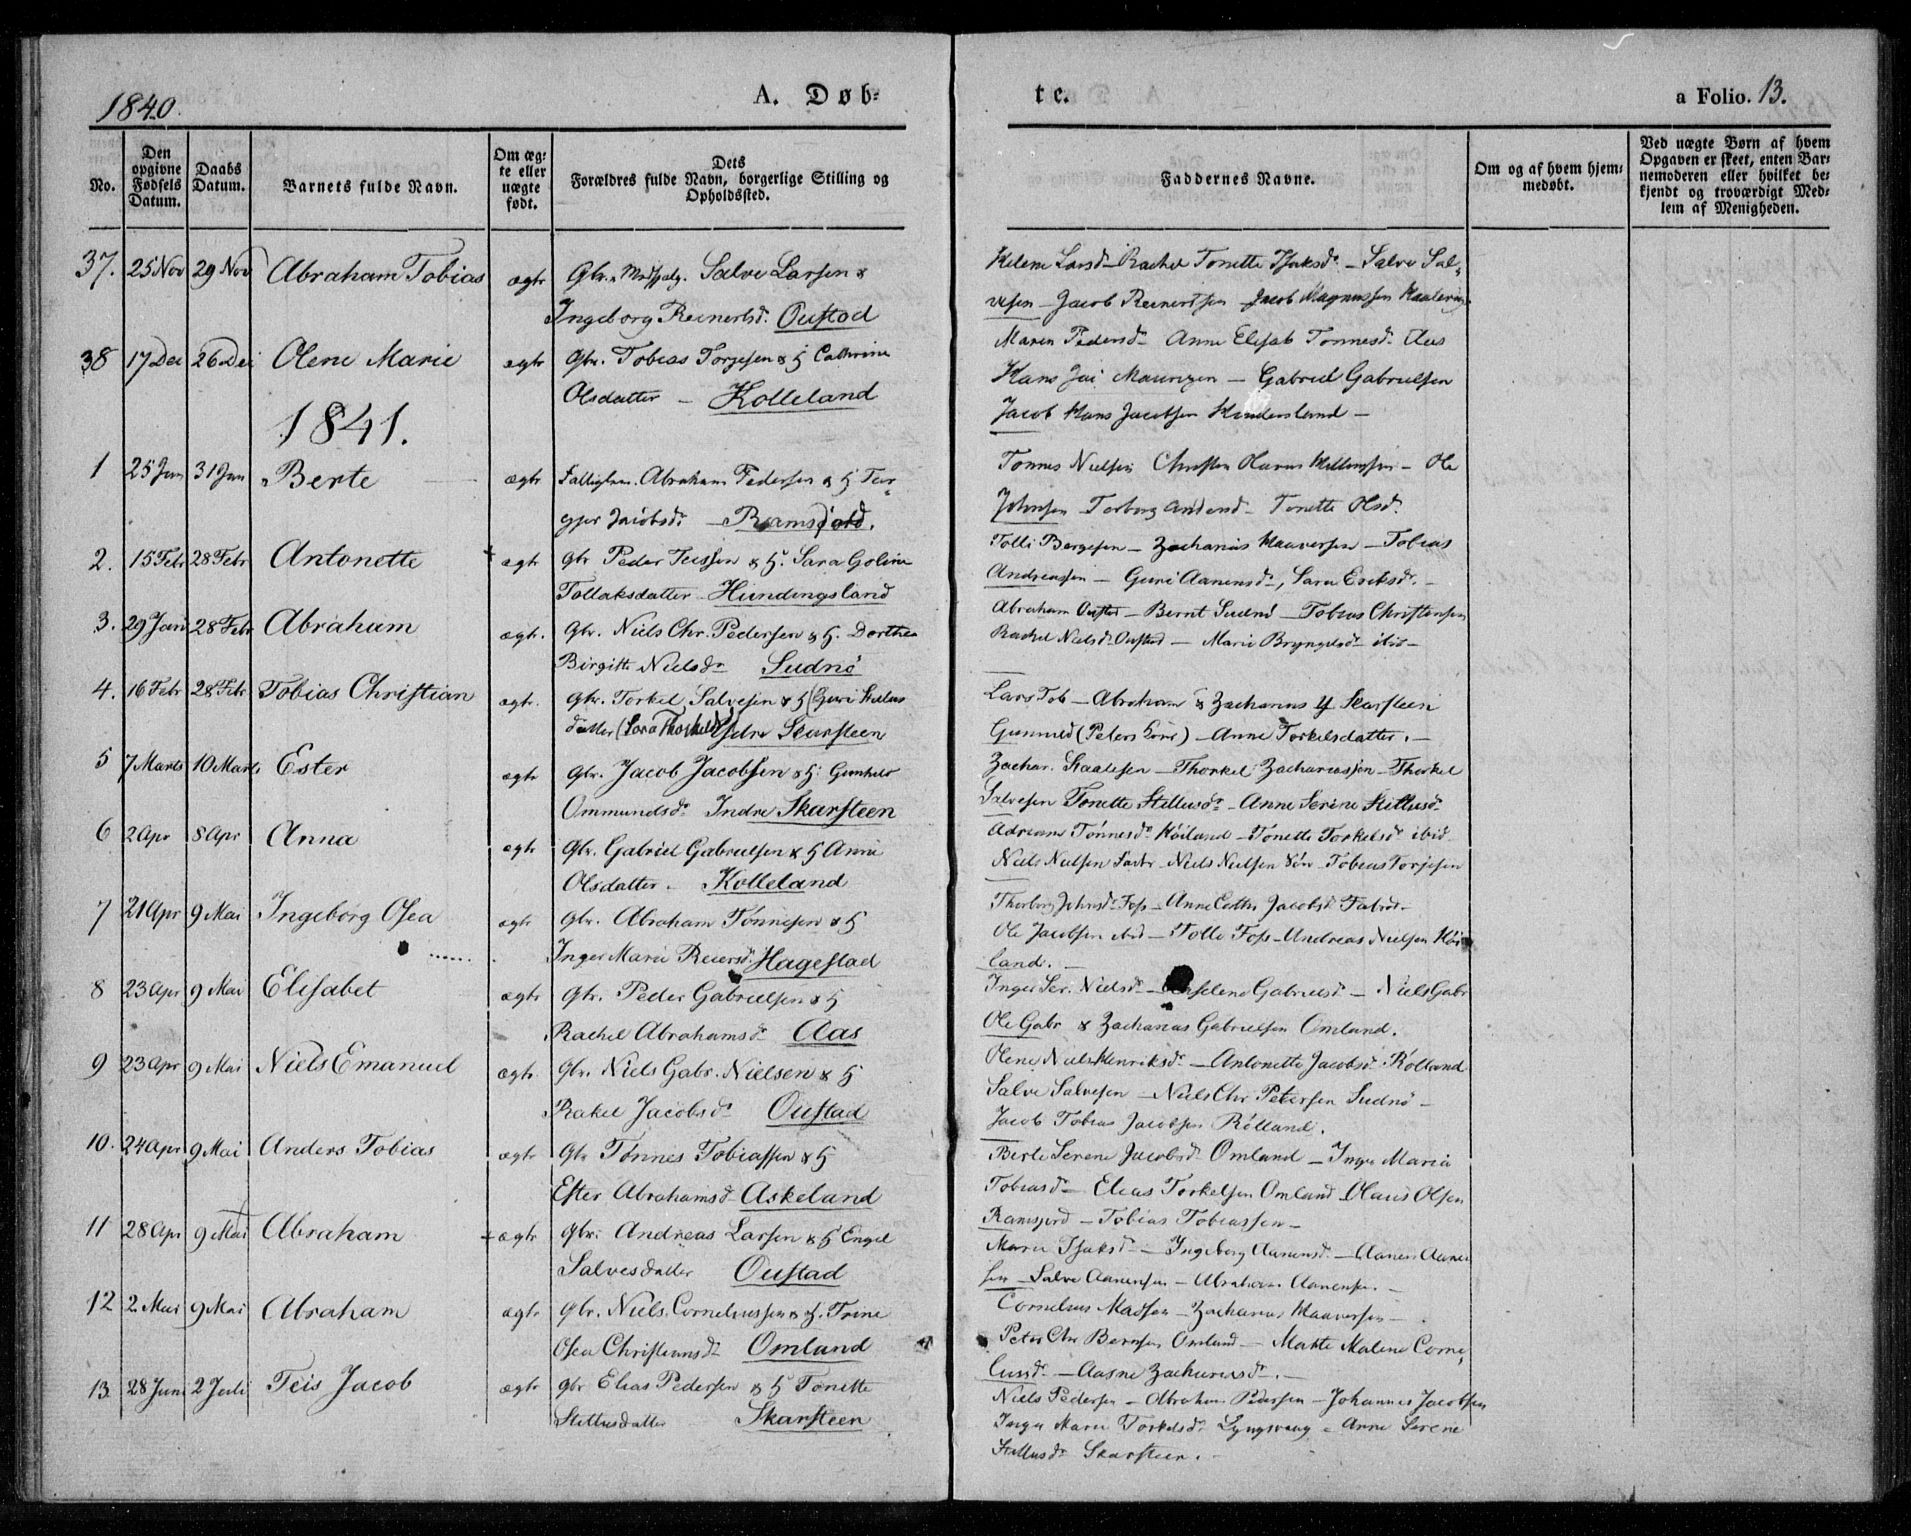 1840.
A. Døb-
te.
a Folio. 13.
No.
Den opgivne Fødsels Datum.
Daabs Datum.
Barnets fulde Navn.
Om æg-
te eller
uægte
født.
Dets
Forældres fulde Navn, borgerlige Stilling og
Opholdssted.
Faddernes Navne.
Om og af hvem hjem-
medøbt.
Ved uægte Børn af hvem
Opgaven er skeet, enten Bar-
nemoderen eller hvilket be-
kjendt og troværdigt Med-
lem af Menigheden.
37. 25 Nov 29 Nov Abraham Tobias ægte Gbr. Salve Larsen &
Ingeborg Reinertsd. Oustad
Helene Larsd. Rachel Tonette Isaksd. - Salve Sal-
vesen - Jacob Reinertsen - Jacob Magnussen
38 17 Dec 26 Dec Olene Marie ægte Gbr. Tobias Torgesen & H Cathrine
Olsdatter - Kolleland
Maren Pedersd. Anne Elisab Tonnesd.
Hans Jac - Gabriel Gabrielsen
Jacob Hans Jacobsen
1841.
1 25 Jan 31 Jan Berte ægte Abraham Pedersen & H Tor-
Jacobsd. - Ramsjord.
Tonnes Nielsen Christen - Ole
Johnsen - Torborg - Tonette Olsd.
2. 15 Febr 28 Febr Antonette + ægte Gbr Peder Teissen & H. Sara Goline
Tollaksdatter Hundingsland
Tolli Bergesen - Zacharias Haaversen - Tobias
Andreassen - Guri Aanensd., Sara Eriksd. -
3. 29 Jan 28 Febr Abraham ægte. Gbr. Niels Chr. Pedersen & H. Dorthea
Birgitte Nielsd. Sudnø
Abraham Oustad - Bernt Sudnø - Tobias Christensen
Rachel Nielsd. Oustad - Marie Bryngelsd. ibid -
4. 16 Febr 28 Febr Tobias Christian ægte. Gbr. Torkel Salvesen & H (Guri Stillus
datter (Sara Thorkelsd) Indre Skarsteen
Lars Tob - Abraham & Zacharias Y Skarsteen
Gunnild (Peters Kone) - Anne Torkelsdatter. -
5 7 Marts 10 Marts Ester ægte Gbr. Jacob Jacobsen & H. Gunhild
Ommundsd. Indre Skarsteen
Zachar. Staalesen - Thorkel Zachariassen - Thorkel
Salvesen Tonette Stillusd. - Anne Serine Stillusd.
6 2 Apr 8 Apr Anna ægte Gbr. Gabriel Gabrielsen & H Anne
Olsdatter - Kolleland
Adriane Tønnesd. Høiland - Tonette Torkelsd. ibid
Niels Nielsen - Niels Nielsen Søn - Tobias Torjesen
7 21 Apr 9 Mai Ingeborg Osea ægte Gbr. Abraham Tønnesen & H
Inger Marie Reiersd. Hagestad
Thorborg Johnsd. Foss - Anne Cathr. Jacobsd.
Ole Jacobsen ibid - Tolle Foss - Andreas Nielsen Høi
land. -
8 23 Apr 9 Mai Elisabet ægte Gbr. Peder Gabrielsen & H
Rachel Abrahamsd. Aas
Inger Ser. Nielsd. - Gabrielsd. - Niels Gabr
Ole Gabr & Zacharias Gabrielsen Omland.
9 23 Apr 9 Mai Niels Emanuel ægte Gbr. Niels Gabr. Nielsen & H
Rakel Jacobsd. Oustad
Olene Niels Henriksd. - Antonette Jacobsd. Rølland
Salve Salvesen - Niels Chr Petersen Sudnø -
Jacob Tobias Jacobsen Rølland.
10. 24 Apr 9 Mai Anders Tobias ægte Gbr Tønnes Tobiassen & H
Ester Abrahamsd. Askeland
Berte Serene Jacobsd. Omland - Inger Maria
Tobiasd. - Elias Torkelsen Omland - Olaus Olsen
Ramsjord - Tobias Tobiassen -
11 28 Apr 9 Mai Abraham + ægte Gbr. Andreas Larsen & H Engel
Salvesdatter Oustad
Maren Isaksd. - Ingeborg Aanensd. - Aanen Aanen
sen - Salve Aanensen - Abraham Aanensen. -
12 2 Mai 9 Mai Abraham ægte Gbr. Niels Corneliussen & H. Trine
Osea Christiansd. Omland
Cornelius Madsen - Zacharias Haaversen -
Peter Chr Berntsen Omland - Malene Corne-
liusd. - Aasne Zachariasd. -
13. 28 Juni 2 Juli Teis Jacob ægte Gbr Elias Pedersen & H Tonette
Stillusdatter Skarsteen
Niels Pedersen - Abraham Pedersen - Johannes Jacobsen
Inger Marie Torkelsd. Lyngsvaag - Anne Serene
Stillusd. Skarsteen. -